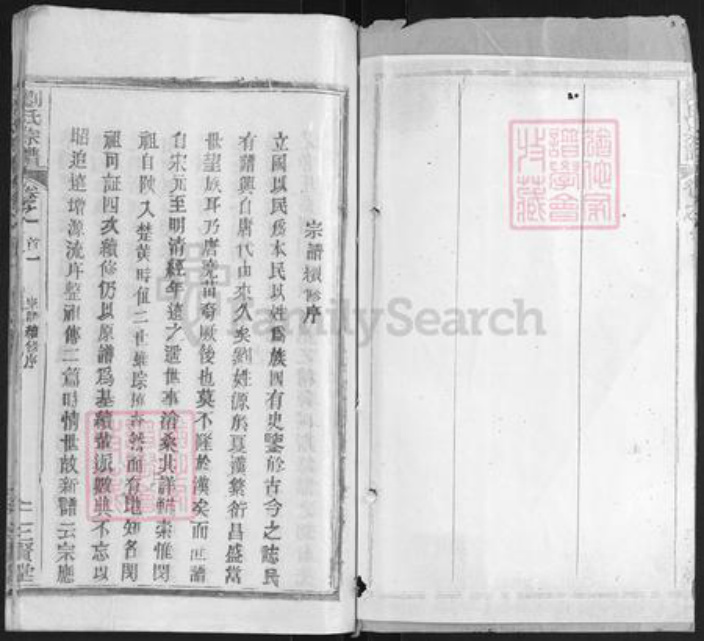 宗譜續修序
立國以民為本民以姓為族國有史鑒於古今之誌民
有譜興自唐代由來久矣劉姓源於夏漢繁衍昌盛當
世望族耳乃唐堯苗裔厥後也莫不隆於漢矣而世譜
自宋元至明清經年遠之遞世事滄桑其詳難索惟閱
祖自陝入楚黃時值二世雖踪
然而有地知名閱
祖可証四次續修仍以原譜為基續輩派數典不忘以
昭追遠增源流序整補傳二篇時情世故新譜云宗應
劉氏宗譜
卷之一
首一
宗譜續修序
三賢堂
FamilySearch